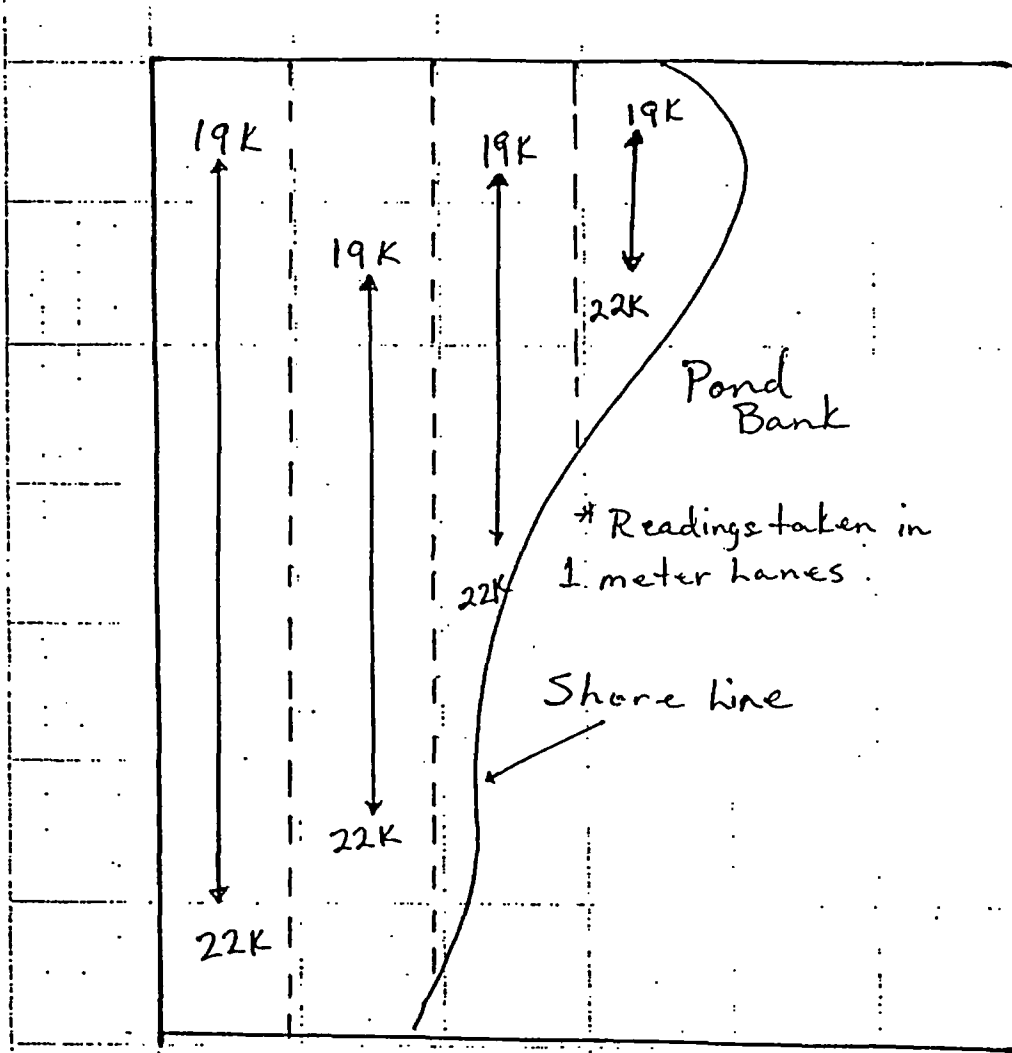 19K
19K
19K
19K
22K
Pond
Bank
* Readings taken in
1 meter Lanes.
22K
Shore Line
22K
22K